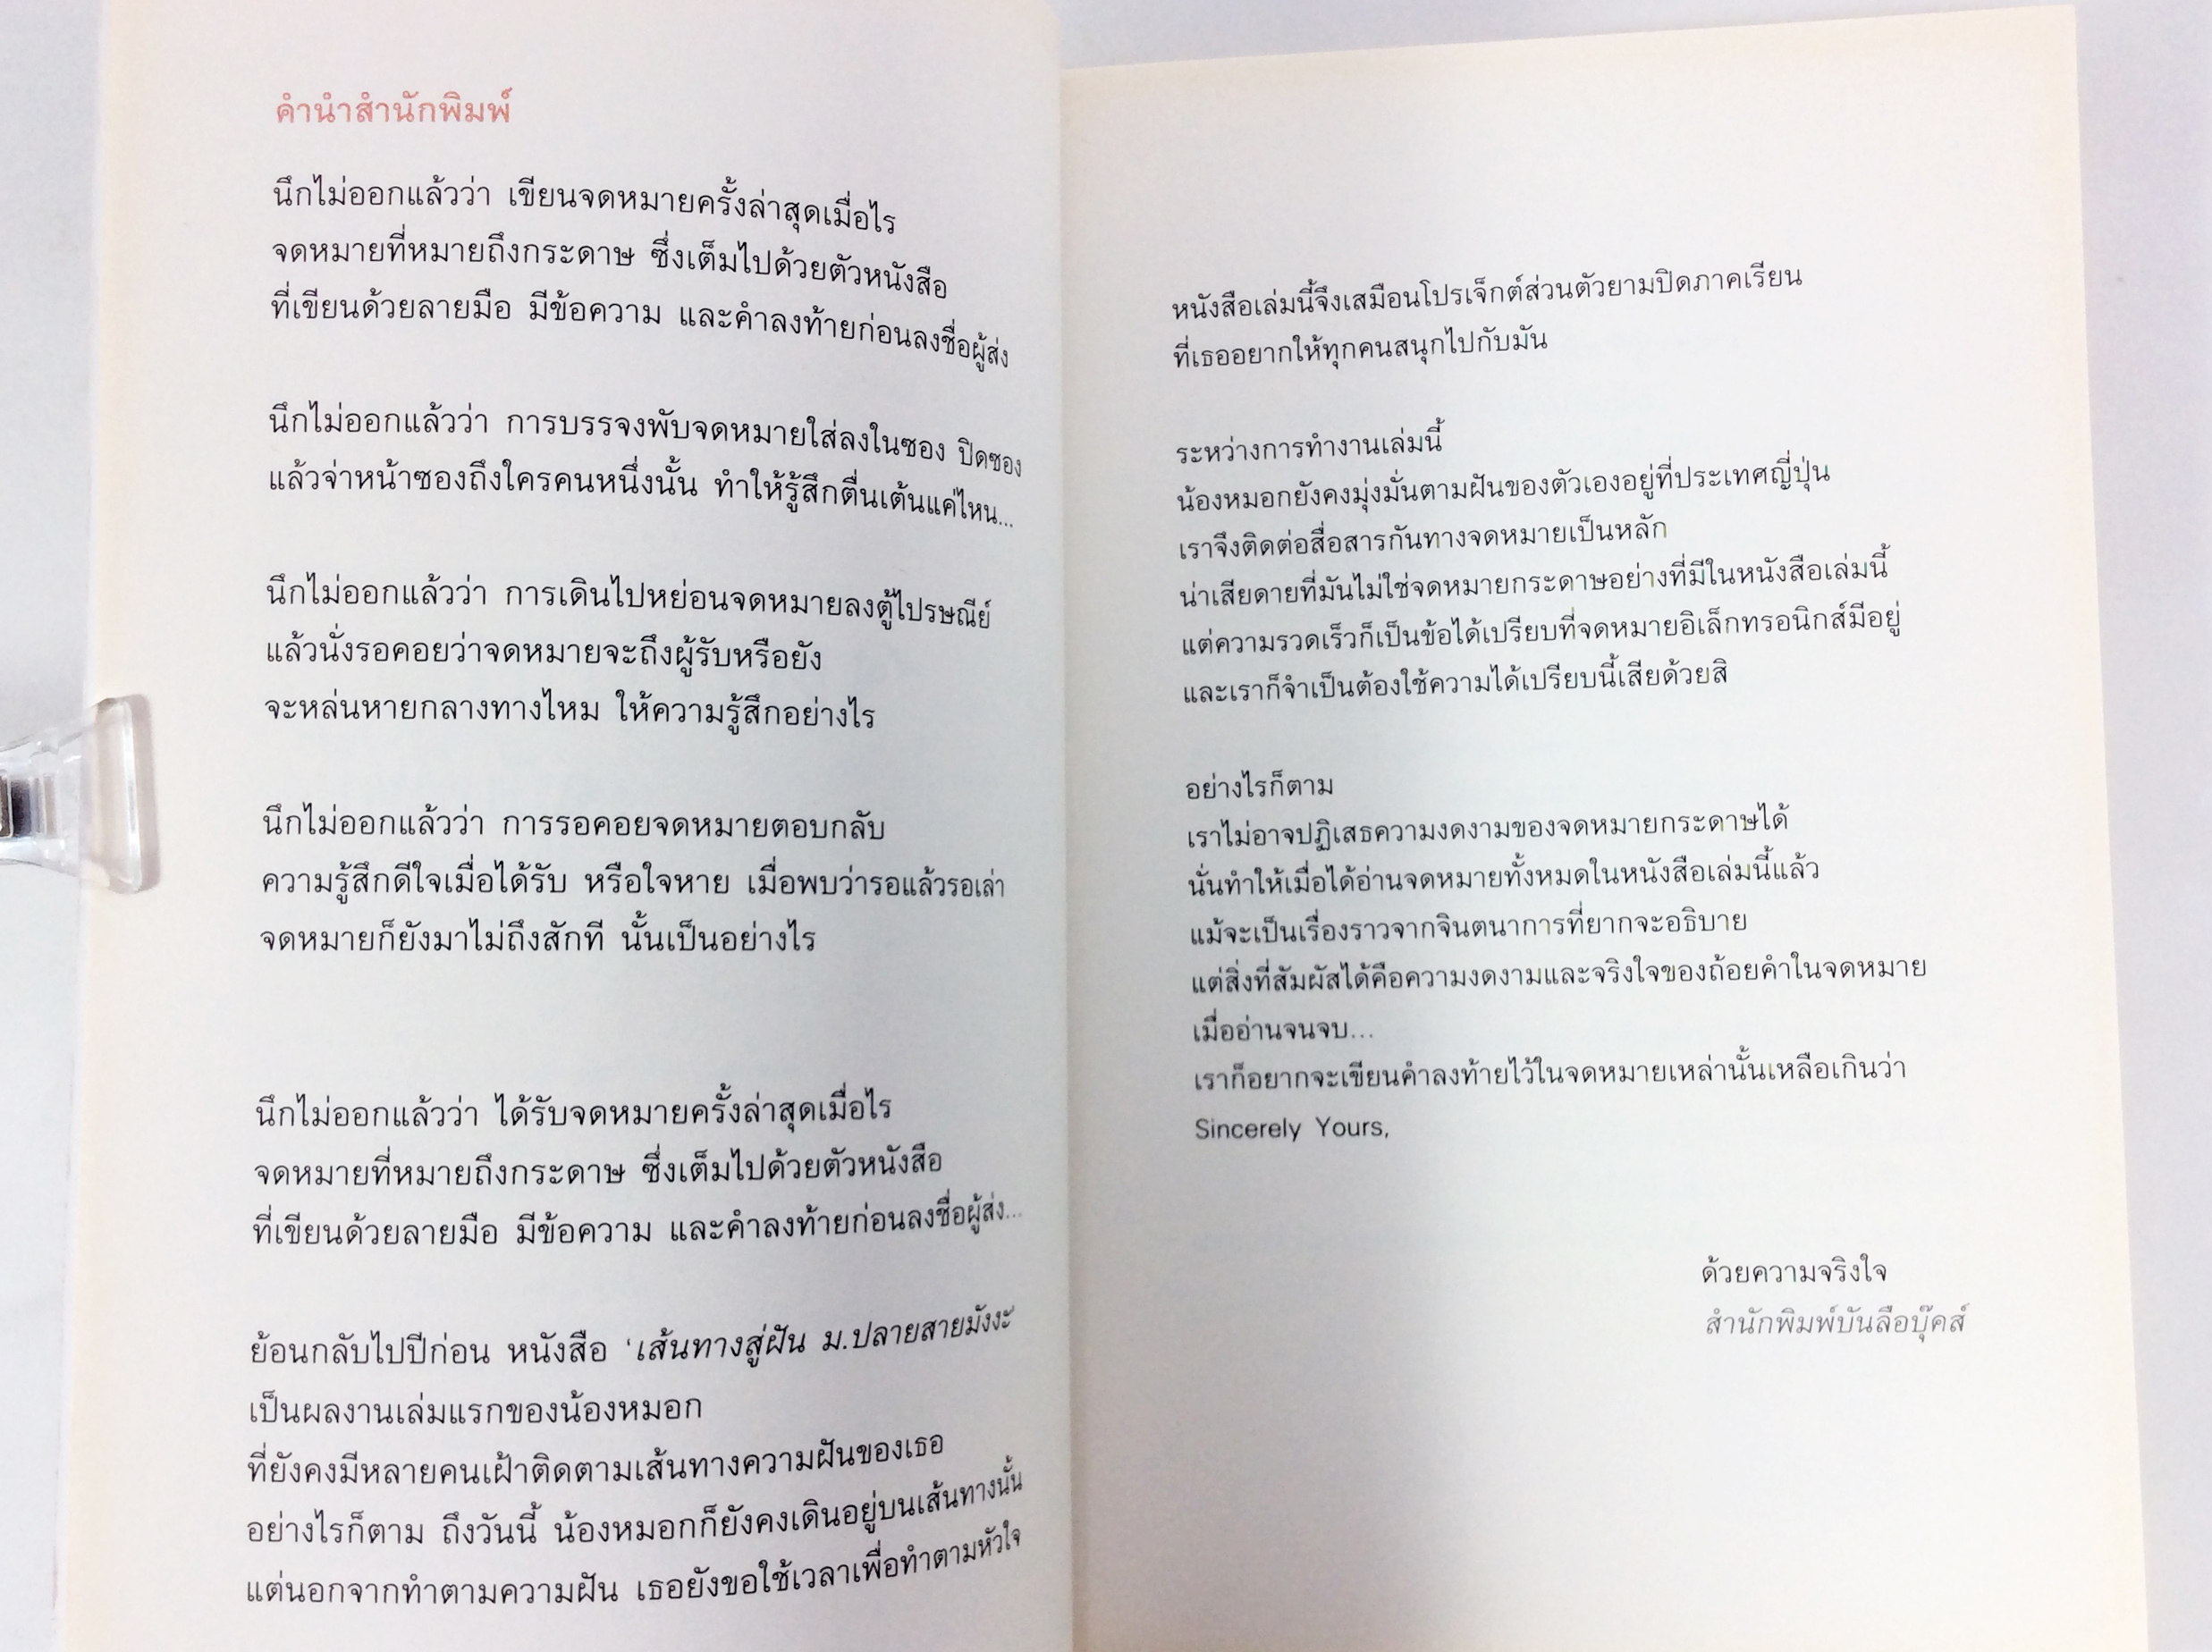 คำนำสำนักพิมพ์
นึกไม่ออกแล้วว่า เขียนจดหมายครั้งล่าสุดเมื่อไร
จดหมายที่หมายถึงกระดาษ ซึ่งเต็มไปด้วยตัวหนังสือ
ที่เขียนด้วยลายมือ มีข้อความ และคำลงท้ายก่อนลงชื่อผู้ส่ง
นึกไม่ออกแล้วว่า การบรรจงพับจดหมายใส่ลงในซอง ปิดซอง
แล้วจ่าหน้าซองถึงใครคนหนึ่งนั้น ทำให้รู้สึกตื่นเต้นแค่ไหน...
นึกไม่ออกแล้วว่า การเดินไปหย่อนจดหมายลงตู้ไปรษณีย์
แล้วนั่งรอคอยว่าจดหมายจะถึงผู้รับหรือยัง
จะหล่นหายกลางทางไหม ให้ความรู้สึกอย่างไร
นึกไม่ออกแล้วว่า การรอคอยจดหมายตอบกลับ
ความรู้สึกดีใจเมื่อได้รับ หรือใจหาย เมื่อพบว่ารอแล้วรอเล่า
จดหมายก็ยังมาไม่ถึงสักที นั้นเป็นอย่างไร
นึกไม่ออกแล้วว่า ได้รับจดหมายครั้งล่าสุดเมื่อไร
จดหมายที่หมายถึงกระดาษ ซึ่งเต็มไปด้วยตัวหนังสือ
ที่เขียนด้วยลายมือ มีข้อความ และคำลงท้ายก่อนลงชื่อผู้ส่ง...
ย้อนกลับไปปีก่อน หนังสือ 'เส้นทางสู่ฝัน ม.ปลายสายมังงะ'
เป็นผลงานเล่มแรกของน้องหมอก
ที่ยังคงมีหลายคนเฝ้าติดตามเส้นทางความฝันของเธอ
อย่างไรก็ตาม ถึงวันนี้ น้องหมอกก็ยังคงเดินอยู่บนเส้นทางนั้น
แต่นอกจากทำตามความฝัน เธอยังขอใช้เวลาเพื่อทำตามหัวใจ
หนังสือเล่มนี้จึงเสมือนโปรเจ็กต์ส่วนตัวยามปิดภาคเรียน
ที่เธออยากให้ทุกคนสนุกไปกับมัน
ระหว่างการทำงานเล่มนี้
น้องหมอกยังคงมุ่งมั่นตามฝันของตัวเองอยู่ที่ประเทศญี่ปุ่น
เราจึงติดต่อสื่อสารกันทางจดหมายเป็นหลัก
น่าเสียดายที่มันไม่ใช่จดหมายกระดาษอย่างที่มีในหนังสือเล่มนี้
แต่ความรวดเร็วก็เป็นข้อได้เปรียบที่จดหมายอิเล็กทรอนิกส์มีอยู่
และเราก็จำเป็นต้องใช้ความได้เปรียบนี้เสียด้วยสิ
อย่างไรก็ตาม
เราไม่อาจปฏิเสธความงดงามของจดหมายกระดาษได้
นั่นทำให้เมื่อได้อ่านจดหมายทั้งหมดในหนังสือเล่มนี้แล้ว
แม้จะเป็นเรื่องราวจากจินตนาการที่ยากจะอธิบาย
แต่สิ่งที่สัมผัสได้คือความงดงามและจริงใจของถ้อยคำในจดหมาย
เมื่ออ่านจนจบ...
เราก็อยากจะเขียนคำลงท้ายไว้ในจดหมายเหล่านั้นเหลือเกินว่า
Sincerely Yours,
ด้วยความจริงใจ
สำนักพิมพ์บันลือบุ๊คส์